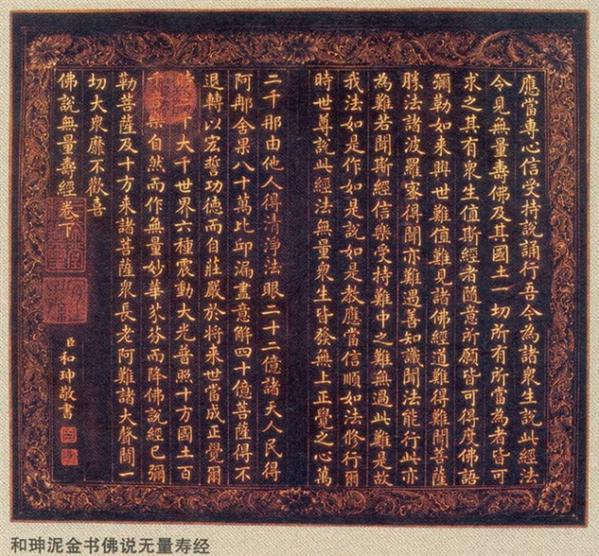 應當專心信受持說誦行吾今為諸眾生說此經法
令見無量壽佛及其國土一切所有所當為者皆可
求之其有眾生值斯經者隨意所願皆可得度佛語
彌勒如來興世難值難見諸佛經道難得難聞菩薩
勝法諸波羅蜜得聞亦難遇善知識聞法能行此亦
為難若聞斯經信樂受持難中之難無過此難是故
我法如是作如是說如是教應當信順如法修行爾
時世尊說此經法無量眾生皆發無上正覺之心萬
二千那由他人得清淨法眼二十二億諸天人民得
阿那舍果八十萬比邱漏盡意解四十億菩薩得不
退轉以宏誓功德而自莊嚴於將來世當成正覺爾
時千大千世界六種震動大光普照十方國土百
千樂自然而作無量妙華芬芬而降佛說經已彌
勒菩薩及十方來諸菩薩眾長老阿難諸大聲聞一
切大眾靡不歡喜
佛說無量壽經卷下
臣和珅敬書
和珅泥金书佛说无量寿经